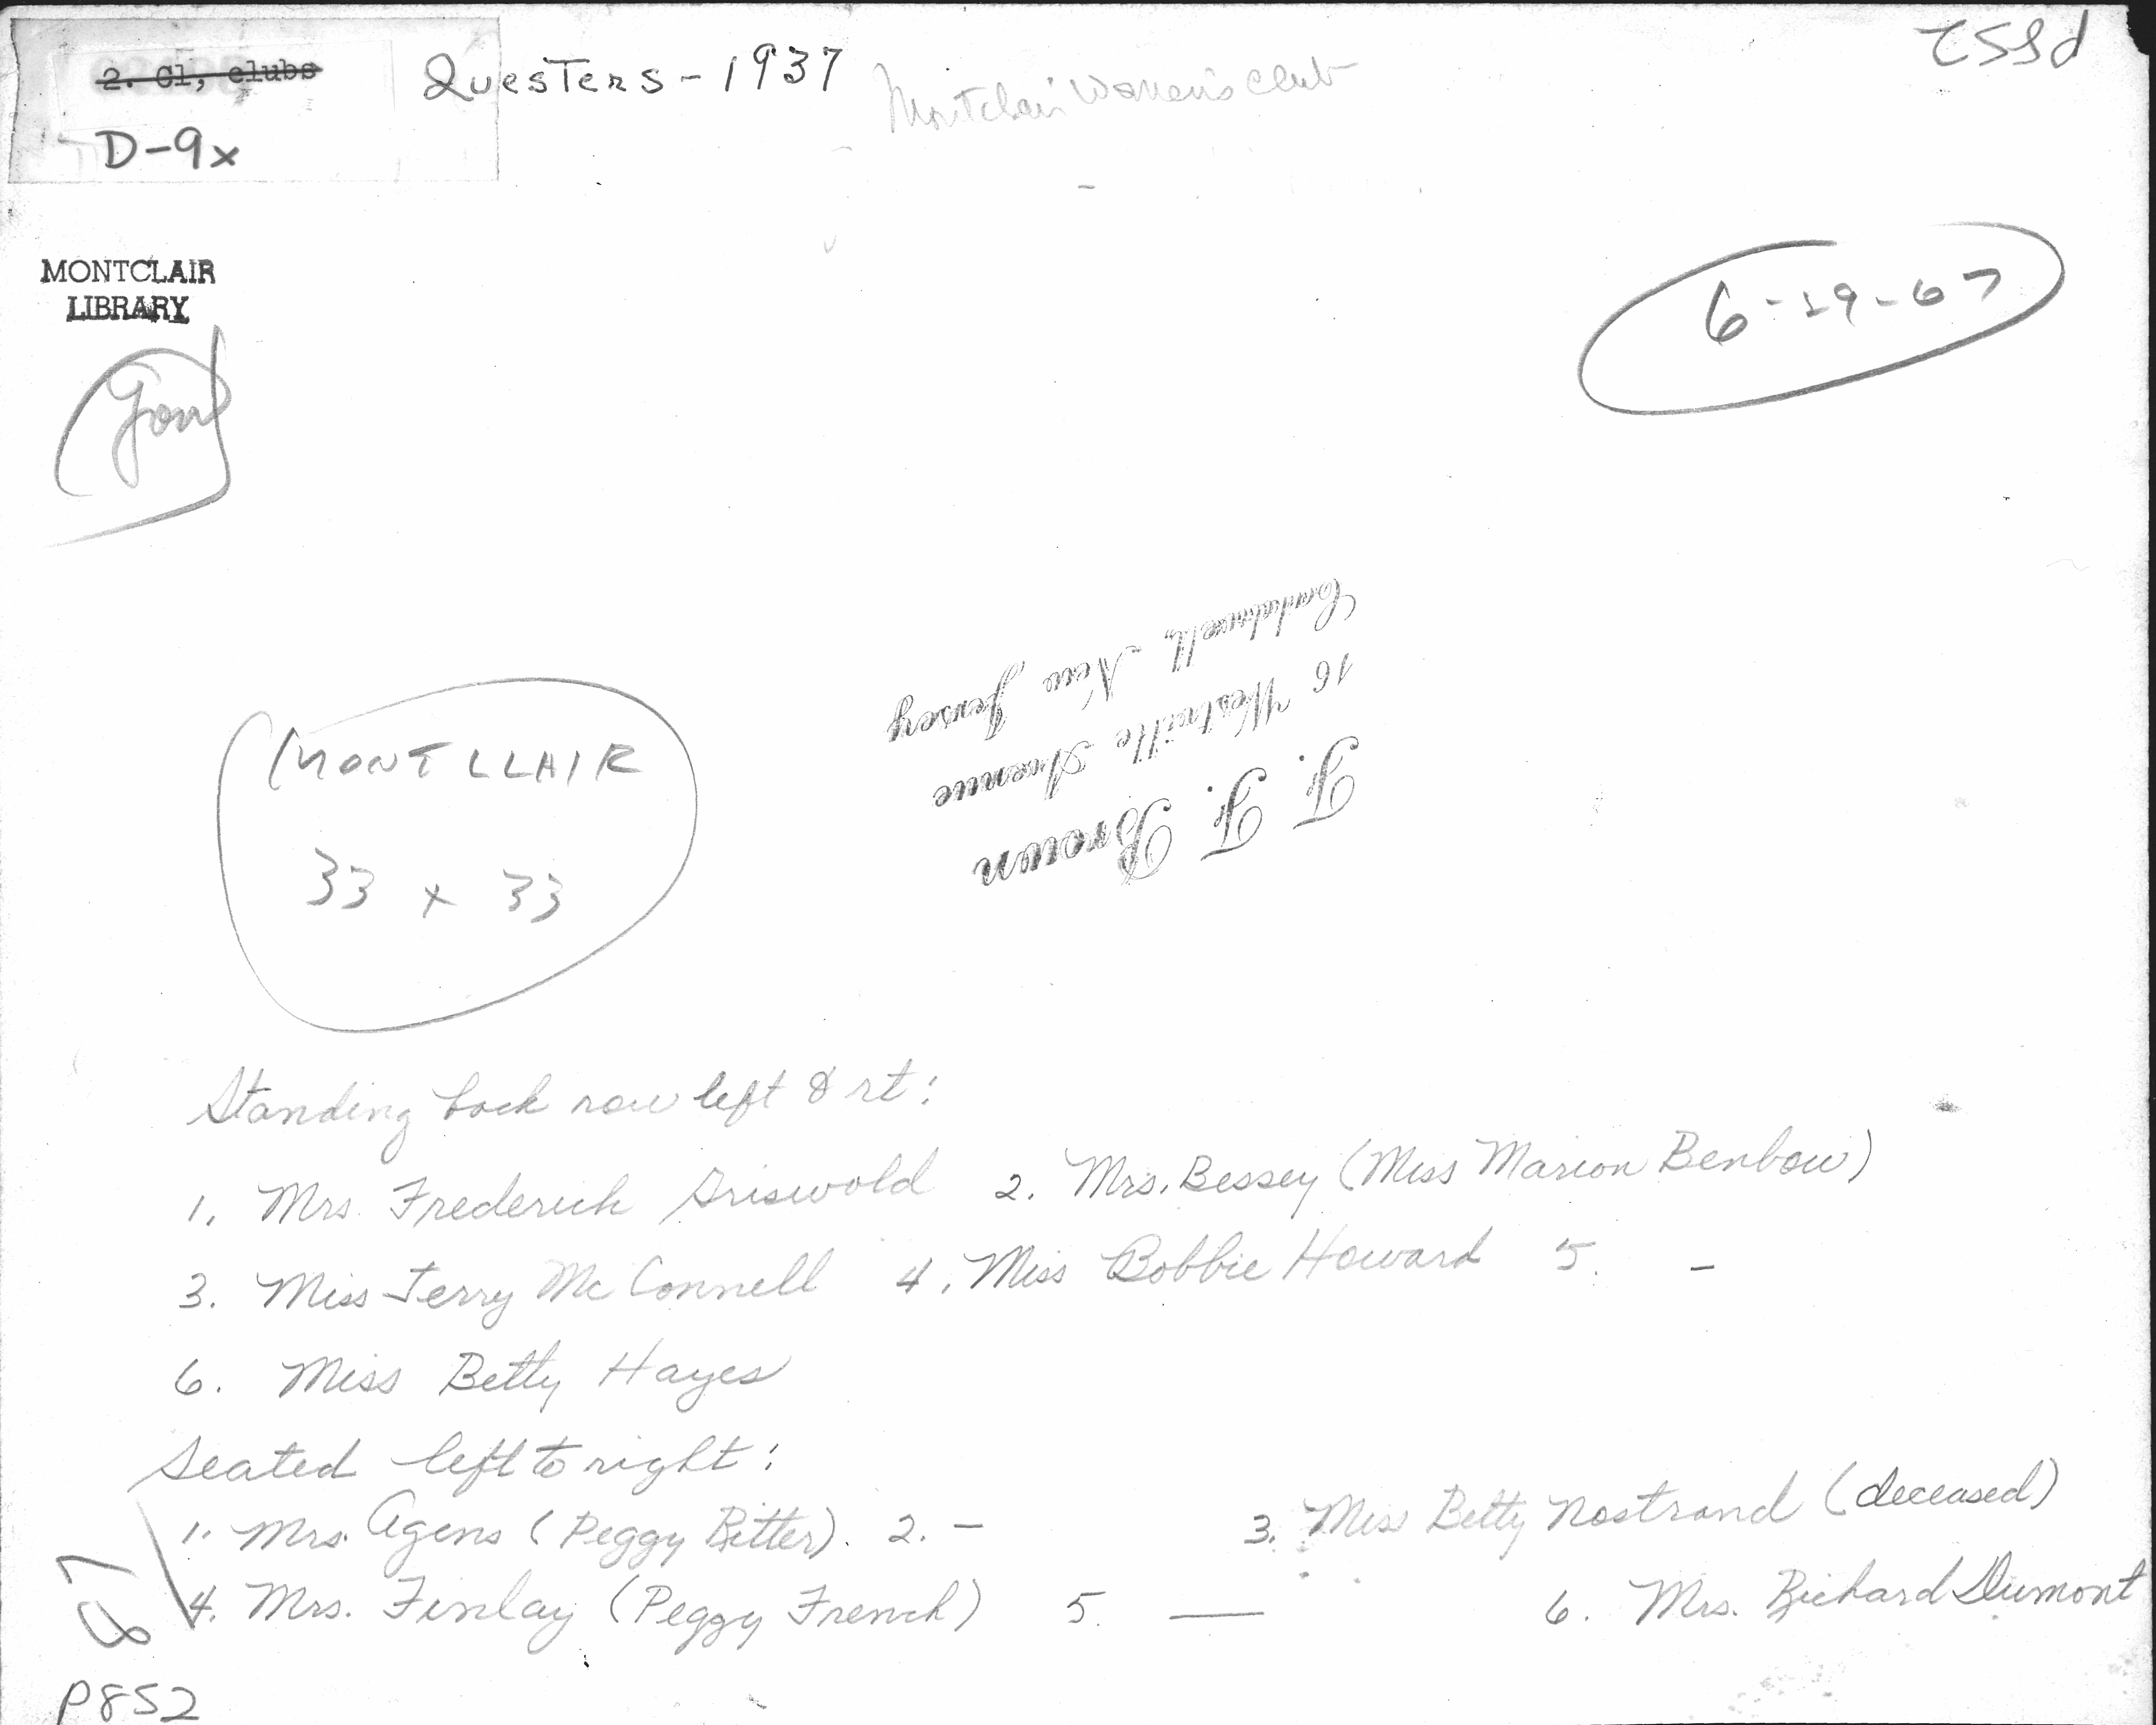 2. Cl, clubs
Questers - 1937 Montclair Women's Club
P852
D-9x
MONTCLAIR
LIBRARY
6-29-67
F. F. Brown
16 Westville Avenue
Caldwell, New Jersey
MONTCLAIR
33 x 33
Standing back row left & rt:
1. Mrs. Frederick Griswold 2. Mrs. Bessey (Miss Marion Benbow)
3. Miss Jerry McConnell 4. Miss Bobbie Howard 5. -
6. Miss Betty Hayes
Seated left to right:
1. Mrs. Agens (Peggy Ritter). 2. - 3. Miss Betty Nostrand (deceased)
4. Mrs. Finlay (Peggy French) 5. — 6. Mrs. Richard Dumont
P852